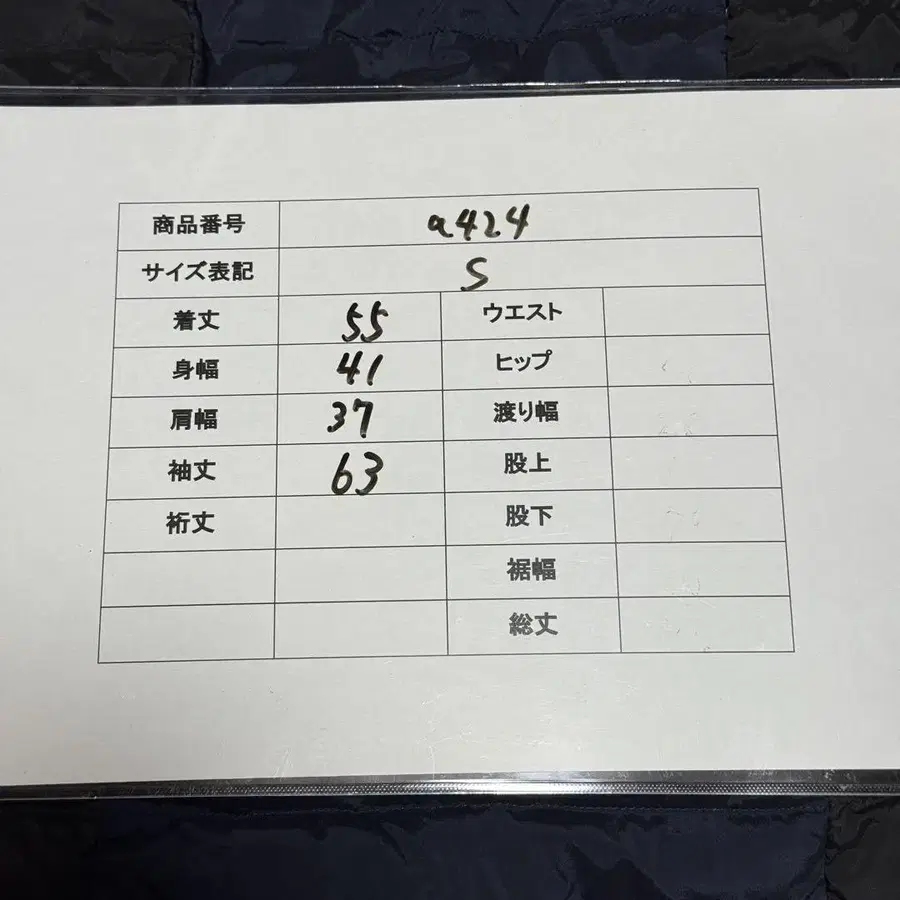 商品番号 a424
サイズ表記 S
着丈 55 ウエスト
身幅 41 ヒップ
肩幅 37 渡り幅
袖丈 63 股上
裄丈 股下
裾幅
総丈